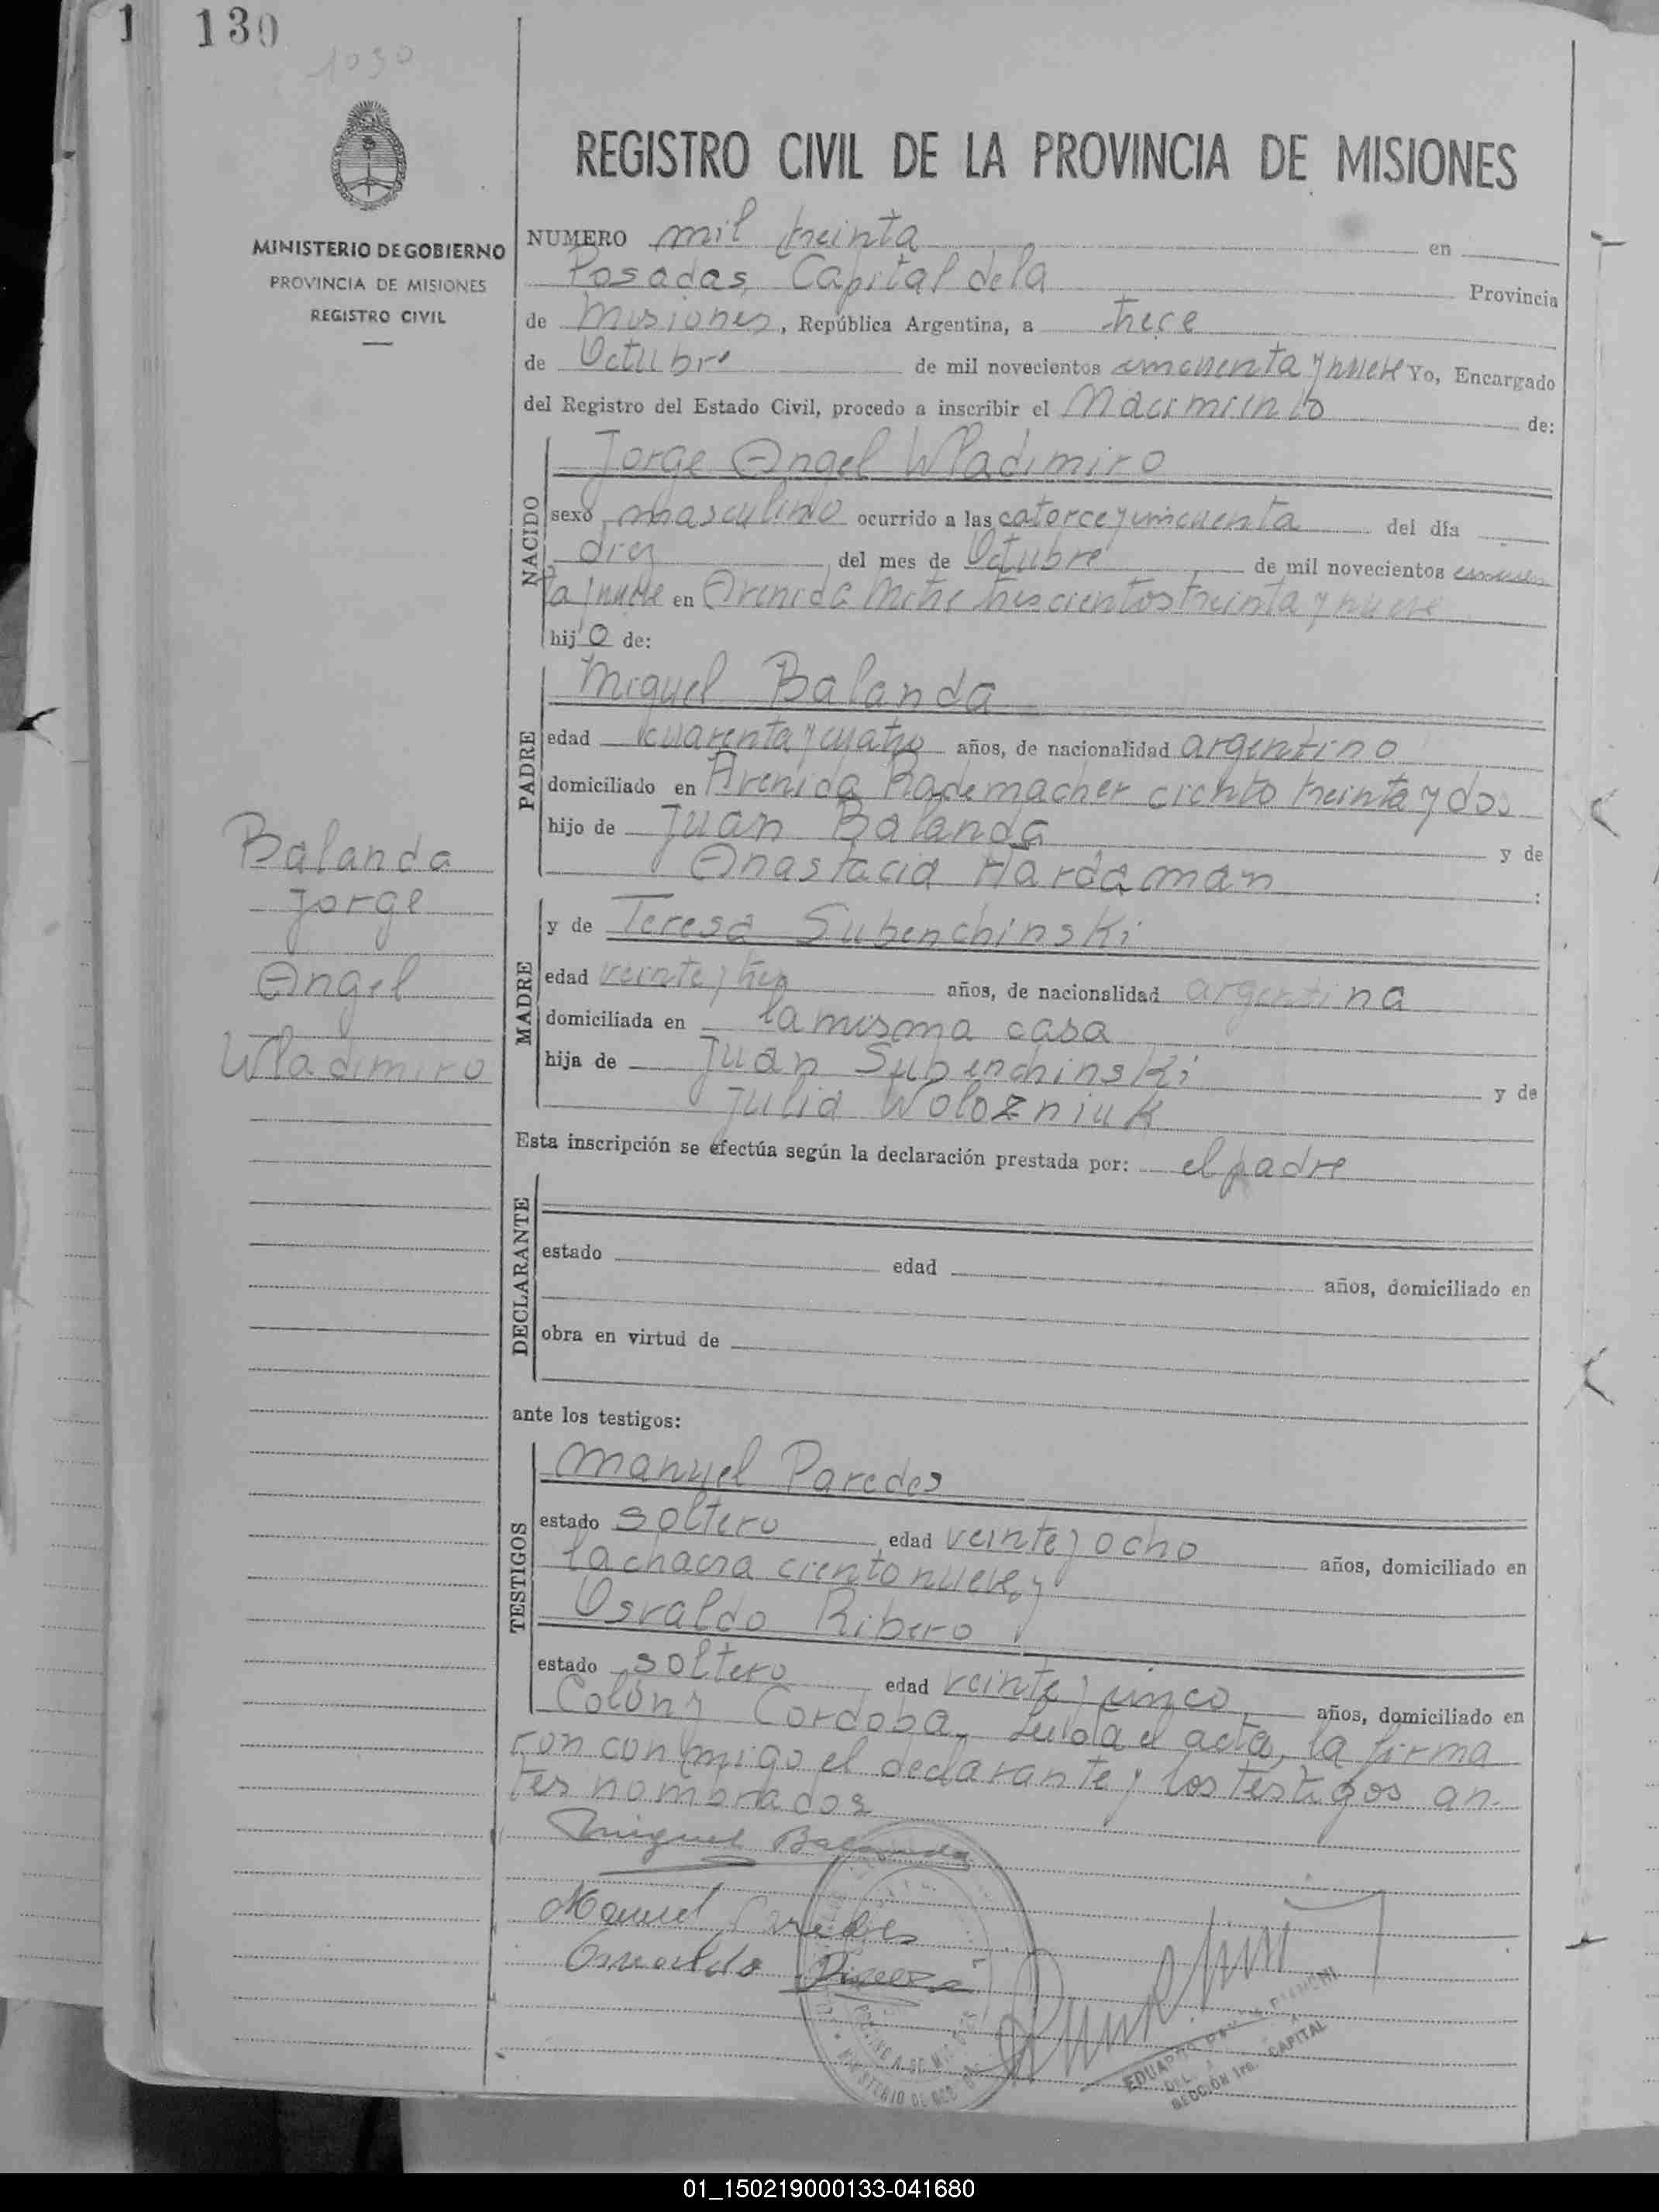 1 130
1030
MINISTERIO DE GOBIERNO
PROVINCIA DE MISIONES
REGISTRO CIVIL
Balanda
Jorge
Angel
Wladimiro
REGISTRO CIVIL DE LA PROVINCIA DE MISIONES
NUMERO mil treinta en
Posadas, Capital de la Provincia
de Misiones, República Argentina, a trece
de Octubre de mil novecientos cincuenta y nueve Yo, Encargado
del Registro del Estado Civil, procedo a inscribir el Nacimiento de:
NACIDO
Jorge Angel Wladimiro
sexo masculino ocurrido a las catorce y cincuenta del día
diez del mes de Octubre de mil novecientos cincuen
ta y nueve en Avenida Mitre trescientos treinta y nueve
hijo de:
PADRE
Miguel Balanda
edad cuarenta y cuatro años, de nacionalidad argentino
domiciliado en Avenida Rademacher ciento treinta y dos
hijo de Juan Balanda y de
Anastacia Hardaman :
MADRE
y de Teresa Subenchinski
edad veinte y tres años, de nacionalidad argentina
domiciliada en la misma casa
hija de Juan Subenchinski y de
Julia Wolozniuk
Esta inscripción se efectúa según la declaración prestada por: el padre
DECLARANTE
estado edad años, domiciliado en
obra en virtud de
ante los testigos:
TESTIGOS
Manuel Paredes
estado soltero, edad veinte y ocho años, domiciliado en
la chacra ciento nueve, y
Osvaldo Ribero
estado soltero edad veinte y cinco, años, domiciliado en
Colón y Cordoba. Leida el acta, la firma
ron conmigo el declarante y los testigos an
tes nombrados
Miguel Balanda
Manuel Paredes
Osvaldo
EDUARDO
DEL
SECCIÓN 1ra. CAPITAL
MINISTERIO DE GOB
01_150219000133-041680